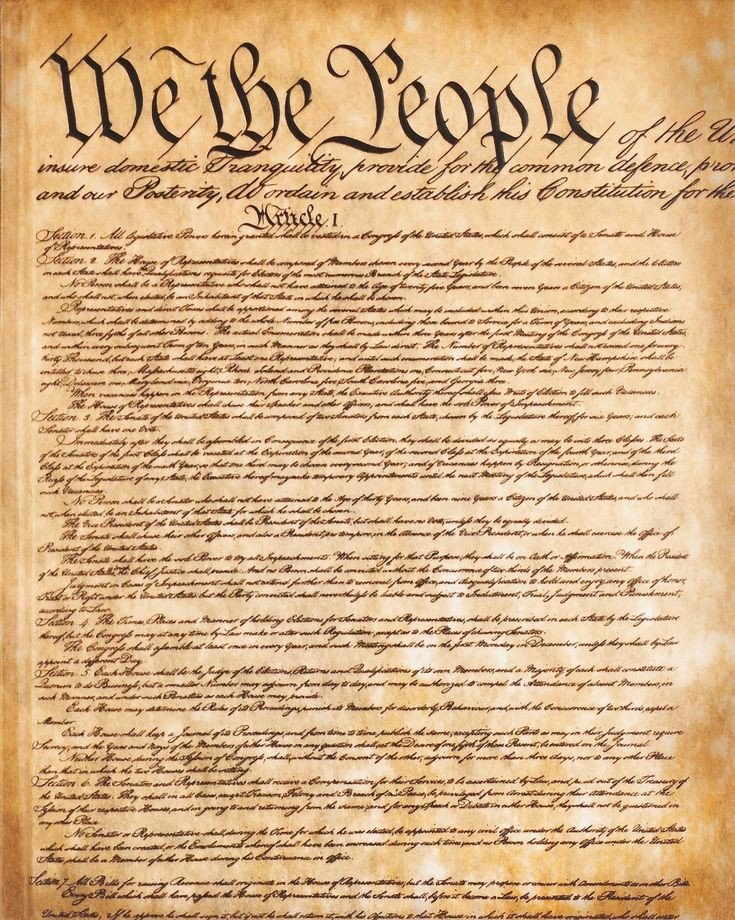 We the People of the U
insure domestic Tranquility, provide for the common defence, pro
and our Posterity, do ordain and establish this Constitution for the
Article I
Section 1. All legislative Powers herein granted shall be vested in a Congress of the United States, which shall consist of a Senate and House
of Representatives.
Section 2. The House of Representatives shall be composed of Members chosen every second Year by the People of the several States, and the Electors
in each State shall have Qualifications requisite for Electors of the most numerous Branch of the State Legislature.
No Person shall be a Representative who shall not have attained to the Age of twenty five Years, and been seven Years a Citizen of the United States,
and who shall not, when elected, be an Inhabitant of that State in which he shall be chosen.
Representatives and direct Taxes shall be apportioned among the several States which may be included within this Union, according to their respective
Numbers, which shall be determined by adding to the whole Number of free Persons, including those bound to Service for a Term of Years, and excluding Indians
not taxed, three fifths of all other Persons. The actual Enumeration shall be made within three Years after the first Meeting of the Congress of the United States,
and within every subsequent Term of ten Years, in such Manner as they shall by Law direct. The Number of Representatives shall not exceed one for every
thirty Thousand, but each State shall have at Least one Representative; and until such enumeration shall be made, the State of New Hampshire shall be
entitled to chuse three, Massachusetts eight, Rhode Island and Providence Plantations one, Connecticut five, New York six, New Jersey four, Pennsylvania
eight, Delaware one, Maryland six, Virginia ten, North Carolina five, South Carolina five, and Georgia three.
When vacancies happen in the Representation from any State, the Executive Authority thereof shall issue Writs of Election to fill such Vacancies.
The House of Representatives shall chuse their Speaker and other Officers; and shall have the sole Power of Impeachment.
Section 3. The Senate of the United States shall be composed of two Senators from each State, chosen by the Legislature thereof, for six Years; and each
Senator shall have one Vote.
Immediately after they shall be assembled in Consequence of the first Election, they shall be divided as equally as may be into three Classes. The Seats
of the Senators of the first Class shall be vacated at the Expiration of the second Year, of the second Class at the Expiration of the fourth Year, and of the third
Class at the Expiration of the sixth Year, so that one third may be chosen every second Year; and if Vacancies happen by Resignation, or otherwise, during the
Recess of the Legislature of any State, the Executive thereof may make temporary Appointments until the next Meeting of the Legislature, which shall then fill
such Vacancies.
No Person shall be a Senator who shall not have attained to the Age of thirty Years, and been nine Years a Citizen of the United States, and who shall
not, when elected, be an Inhabitant of that State for which he shall be chosen.
The Vice President of the United States shall be President of the Senate, but shall have no Vote, unless they be equally divided.
The Senate shall chuse their other Officers, and also a President pro tempore, in the Absence of the Vice President, or when he shall exercise the Office of
President of the United States.
The Senate shall have the sole Power to try all Impeachments. When sitting for that Purpose, they shall be on Oath or Affirmation. When the President
of the United States is tried, the Chief Justice shall preside: And no Person shall be convicted without the Concurrence of two thirds of the Members present.
Judgment in Cases of Impeachment shall not extend further than to removal from Office, and disqualification to hold and enjoy any Office of honor,
Trust or Profit under the United States: but the Party convicted shall nevertheless be liable and subject to Indictment, Trial, Judgment and Punishment,
according to Law.
Section 4. The Times, Places and Manner of holding Elections for Senators and Representatives, shall be prescribed in each State by the Legislature
thereof; but the Congress may at any time by Law make or alter such Regulations, except as to the Places of chusing Senators.
The Congress shall assemble at least once in every Year, and such Meeting shall be on the first Monday in December, unless they shall by Law
appoint a different Day.
Section 5. Each House shall be the Judge of the Elections, Returns and Qualifications of its own Members, and a Majority of each shall constitute a
Quorum to do Business; but a smaller Number may adjourn from day to day, and may be authorized to compel the Attendance of absent Members, in
such Manner, and under such Penalties as each House may provide.
Each House may determine the Rules of its Proceedings, punish its Members for disorderly Behaviour, and, with the Concurrence of two thirds, expel a
Member.
Each House shall keep a Journal of its Proceedings, and from time to time publish the same, excepting such Parts as may in their Judgment require
Secrecy; and the Yeas and Nays of the Members of either House on any question shall, at the Desire of one fifth of those Present, be entered on the Journal.
Neither House, during the Session of Congress, shall, without the Consent of the other, adjourn for more than three days, nor to any other Place
than that in which the two Houses shall be sitting.
Section 6. The Senators and Representatives shall receive a Compensation for their Services, to be ascertained by Law, and paid out of the Treasury of
the United States. They shall in all Cases, except Treason, Felony and Breach of the Peace, be privileged from Arrest during their Attendance at the
Session of their respective Houses, and in going to and returning from the same; and for any Speech or Debate in either House, they shall not be questioned in
any other Place.
No Senator or Representative shall, during the Time for which he was elected, be appointed to any civil Office under the Authority of the United States
which shall have been created, or the Emoluments whereof shall have been encreased during such time; and no Person holding any Office under the United
States, shall be a Member of either House during his Continuance in Office.
Section 7. All Bills for raising Revenue shall originate in the House of Representatives; but the Senate may propose or concur with Amendments as on other Bills.
Every Bill which shall have passed the House of Representatives and the Senate, shall, before it become a Law, be presented to the President of the
United States; If he approve he shall sign it, but if not he shall return it, with his Objections to that House in which it shall have originated